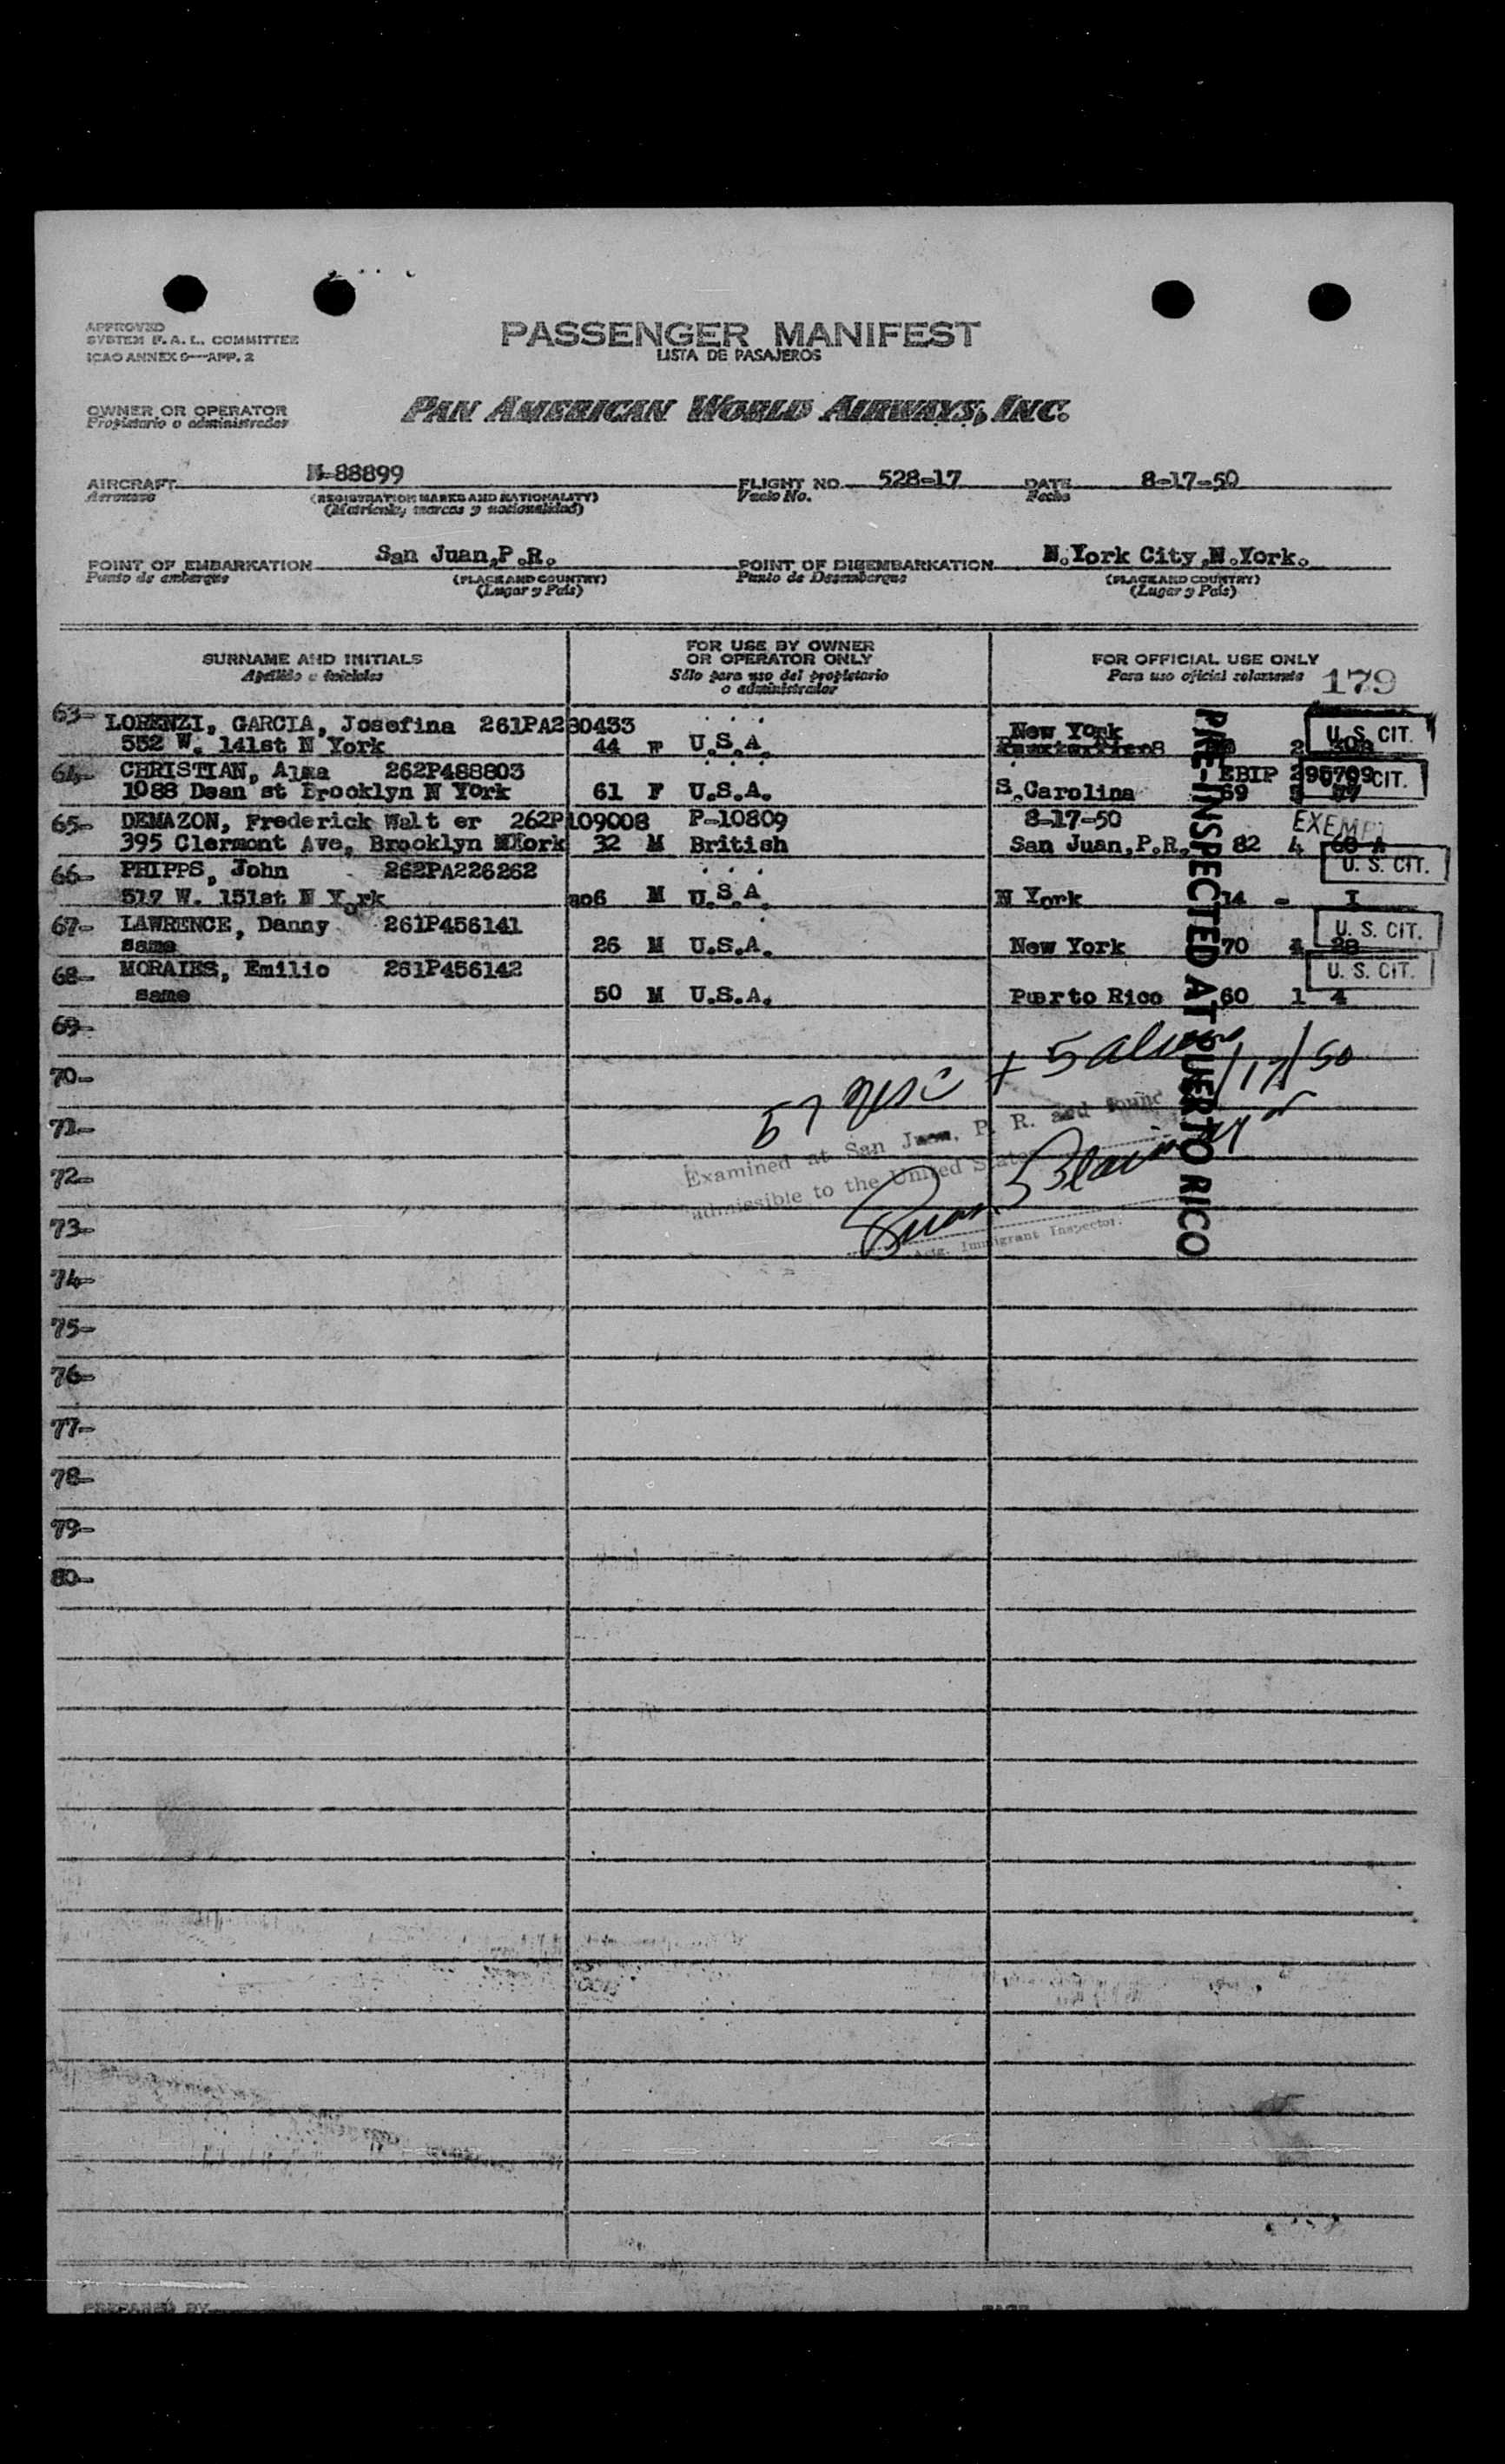 APPROVED
SYSTEM F. A. L. COMMITTEE
ICAO ANNEX 9—APP. 2
PASSENGER MANIFEST
LISTA DE PASAJEROS
OWNER OR OPERATOR
Propietario o administrador
PAN AMERICAN WORLD AIRWAYS, INC.
AIRCRAFT N-88899
Aeronave
(REGISTRATION MARKS AND NATIONALITY)
(Matricula, marcas y nacionalidad)
FLIGHT NO. 528-17
Vuelo No.
DATE 8-17-50
Fecha
POINT OF EMBARKATION San Juan,P.R.
Punto de embarque
(PLACE AND COUNTRY)
(Lugar y País)
POINT OF DISEMBARKATION N.York City,N.York.
Punto de Desembarque
(PLACE AND COUNTRY)
(Lugar y País)
SURNAME AND INITIALS
Apellido e iniciales
FOR USE BY OWNER
OR OPERATOR ONLY
Sólo para uso del propietario
o administrador
FOR OFFICIAL USE ONLY
Para uso oficial solamente
179
63- LORENZI, GARCIA, Josefina 261PA230433 New York U. S. CIT.
552 W. 141st N York 44 F U.S.A. 2
64- CHRISTIAN, Alma 262P488803 EBIP 295799 CIT.
1088 Dean st Brooklyn N York 61 F U.S.A. S.Carolina 69
65- DEMAZON, Frederick Walt er 262P109008 P-10809 8-17-50 EXEMPT
395 Clermont Ave, Brooklyn NYork 32 M British San Juan,P.R. 82 4 68 A
66- PHIPPS, John 262PA226262 U. S. CIT.
517 W. 151st N York 06 M U.S.A N York 14 - I
67- LAWRENCE, Danny 261P456141 U. S. CIT.
same 26 M U.S.A. New York 70 28
68- MORALES, Emilio 261P456142 U. S. CIT.
same 50 M U.S.A. Puerto Rico 60 1 4
PRE-INSPECTED AT PUERTO RICO
69-
70-
71-
72-
73-
74-
75-
76-
77-
78-
79-
80-
57 + 5 17/50
Examined at San Juan, P. R. and found
admissible to the United States
Actg. Immigrant Inspector.
PREPARED BY
PAGE